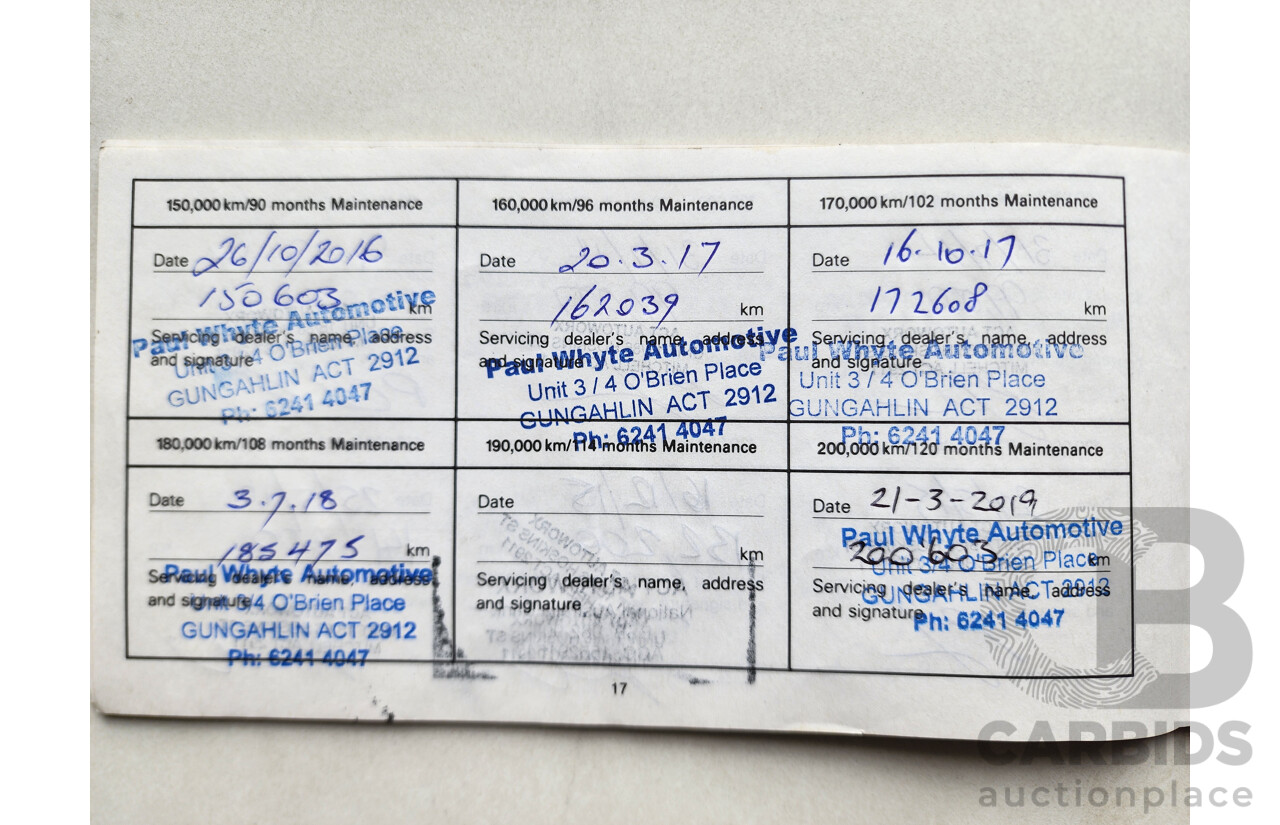 150,000 km/90 months Maintenance
Date 26/10/2016
150 603 km
Servicing dealer's name, address
and signature
Paul Whyte Automotive
Unit 3/4 O'Brien Place
GUNGAHLIN ACT 2912
Ph: 6241 4047
160,000 km/96 months Maintenance
Date 20.3.17
162039 km
Servicing dealer's name, address
and signature
Paul Whyte Automotive
Unit 3 / 4 O'Brien Place
GUNGAHLIN ACT 2912
Ph: 6241 4047
170,000 km/102 months Maintenance
Date 16.10.17
172608 km
Servicing dealer's name, address
and signature
Paul Whyte Automotive
Unit 3 / 4 O'Brien Place
GUNGAHLIN ACT 2912
Ph: 6241 4047
180,000 km/108 months Maintenance
Date 3.7.18
185475 km
Servicing dealer's name, address
and signature
Paul Whyte Automotive
Unit 3/4 O'Brien Place
GUNGAHLIN ACT 2912
Ph: 6241 4047
190,000 km/114 months Maintenance
Date
km
Servicing dealer's name, address
and signature
200,000 km/120 months Maintenance
Date 21-3-2019
200603 km
Servicing dealer's name, address
and signature
Paul Whyte Automotive
Unit 3/4 O'Brien Place
GUNGAHLIN ACT 2912
Ph: 6241 4047
17
CARBIDS
auctionplace